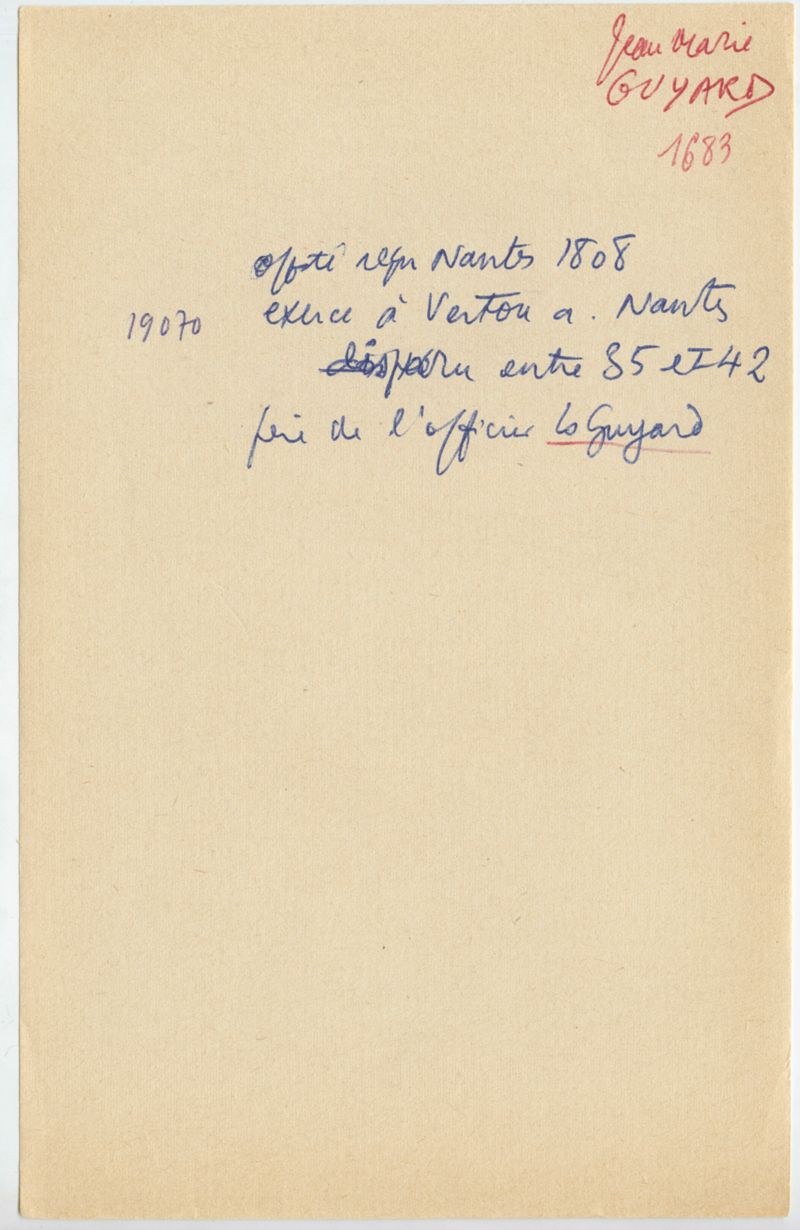 Jean Marie
GUYARD
1683
reçu Nantes 1808
19070 exerce à Vertou a. Nantes
disparu entre 35 et 42
père de l'officier Guyard